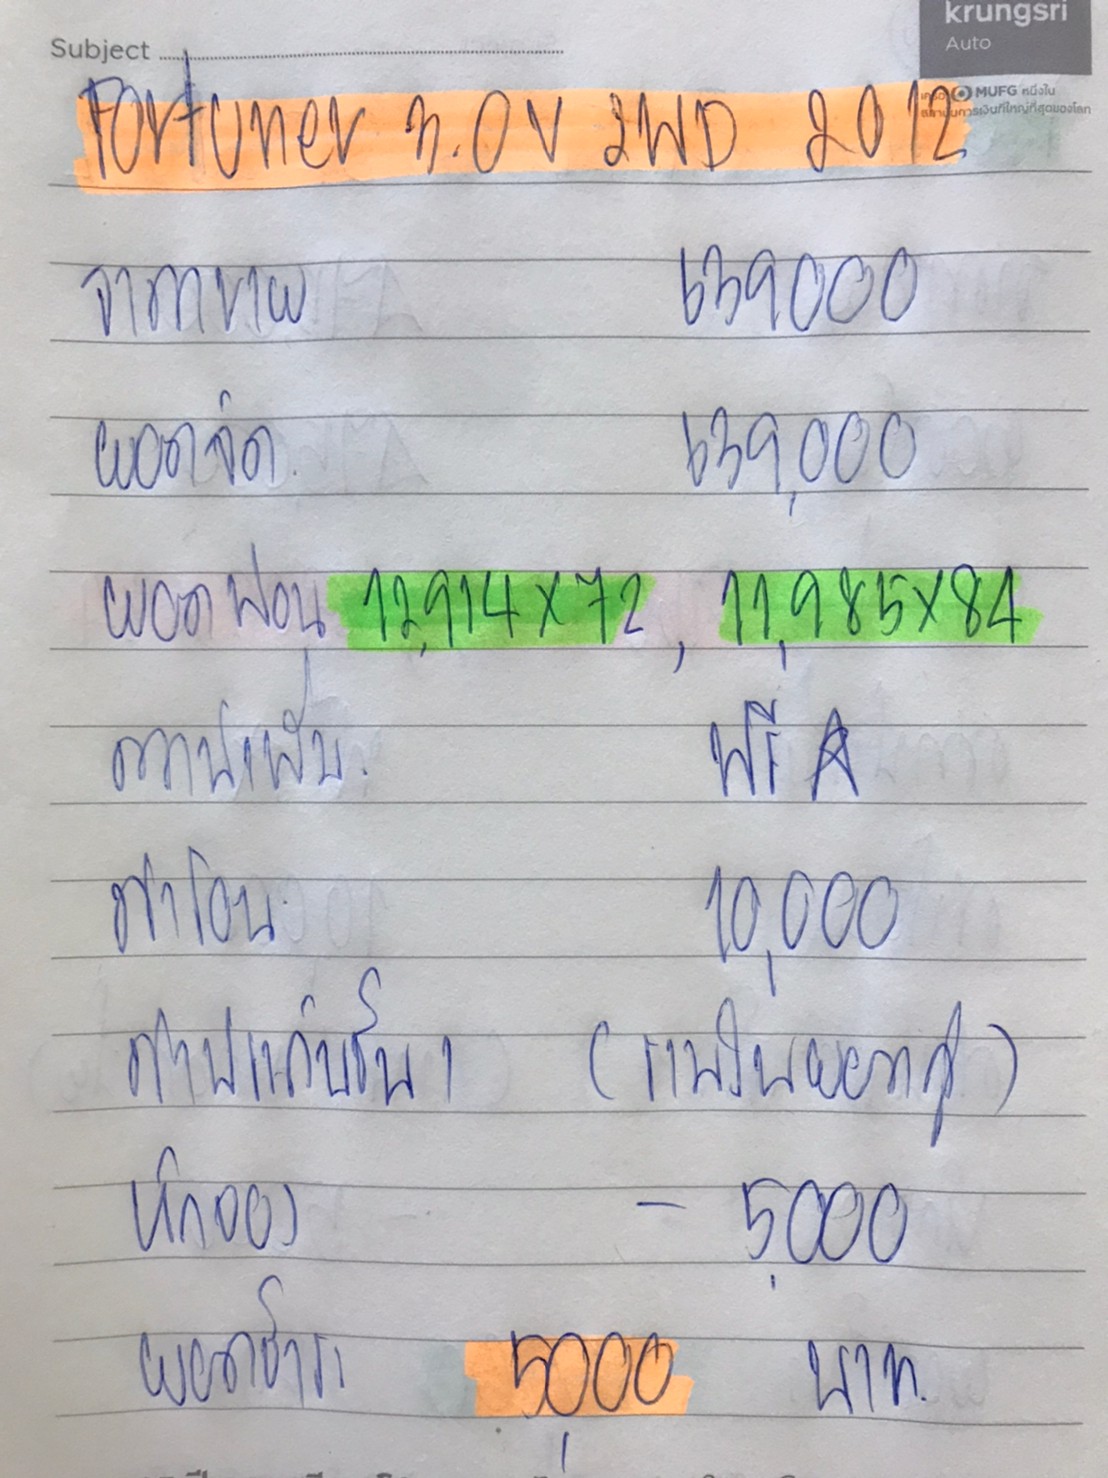 krungsri
Auto
Subject
MUFG หนึ่งใน
สถาบันการเงินที่ใหญ่ที่สุดของโลก
Fortuner 3.0V 2WD 2012
ราคาขาย 639,000
ยอดจัด 639,000
ยอดผ่อน 12,914 x 72 , 11,985 x 84
ดาวน์เพิ่ม ฟรี
ค่าโอน 10,000
ค่าประกันชั้น 1 (รวมในยอดกู้)
หักจอง - 5,000
ยอดชำระ 5,000 บาท